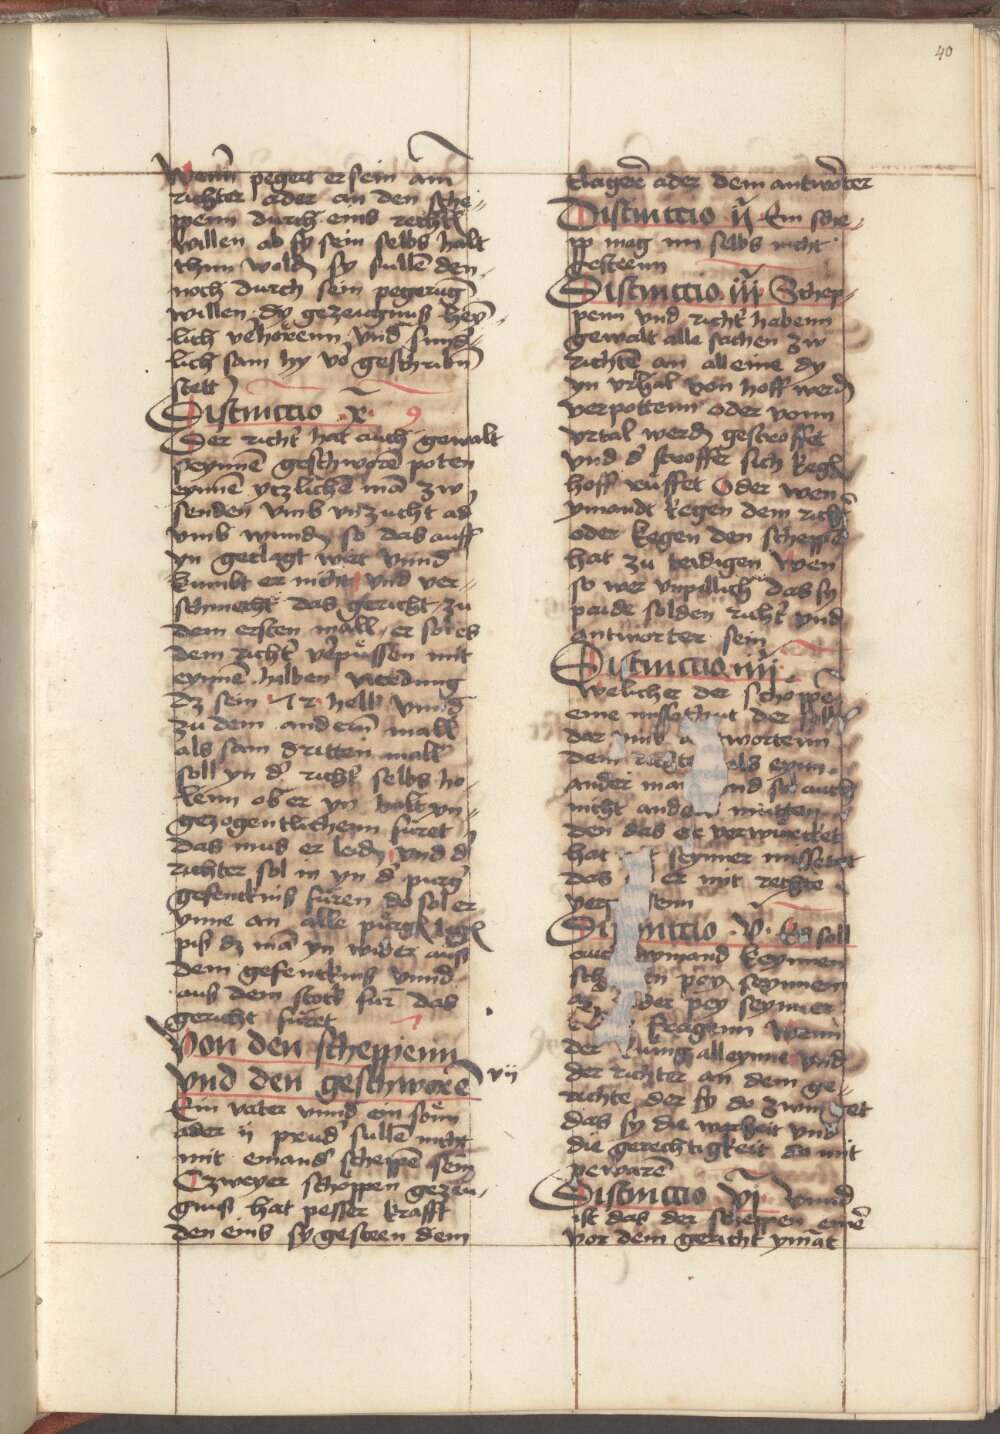 40
Wenn pegert er sein am
richter ader an den sche-
ppenn durch eins rechtn
willen ab sy sein selbs halt
thun wolden sy sullē den-
noch durch sein pegerūg
willen dy gezeugnuß hey-
lich vǒhorenn vnd sund-
lich sam hy vō geschribn̄
stett
Distinctio .x.
Der richt' hat auch gewalt
seynnē geschworē poten
eynnē ytzlichē mā zw
senden vmb vnzucht ad'
vmb wunden so das auff
yn geclagt wert vnnd
kumbt er nicht vnd ver-
schmecht das gericht zu
dem ersten mall er sol es
dem richt' v'püssen mit
eynnē halben vierdung
dz sein
zu dem anderm mall
als sam dritten mall
soll yn d' richt' selbs ho-
lenn ob er yn halt vn-
gezogentlichenn füret
das mus er leidn vnd d'
richter sol in yn d' purg'
gefencknis füren do sol er
ynne an alle pürgn
piß dz mā yn wider aus
dem gefencknis vnnd
aus dem stock fur das
gericht füret
Von den scheppenn
vnd den geschworē vij
Ein vater vnnd ein sönn
ader ij prud' sullē nicht
mit einand' scheppē sein
Czweyer schoppen gezeu-
gnuß hat pesser krafft
den eins sy gesteen dem
clagere ader dem antworter
Distinctio ij Ein sche-
pp mag im selbs nicht
gesteenn
Distinctio iij Schep-
penn vnd richt' habenn
gewalt alle sachen zw
richtē an alleine dy
yn vrthal von hoff werdn
verpottenn oder vonn
vrtal werdn gestroffet
vnd d' stroffer sich kegn
hoff ruffet Oder wen
ymandt kegen dem richt'
oder kegen den scheppē
hat zu teidigen Wen
so wer vnpillich das sy
paide solden richt' vnd
antworter sein
Distinctio iiij.
Welicher der schoppē
eine missethat der soll
dar vmb wortenn
dem richte als eynn
ander man vnd sol auch
nicht anders
den das er verwurcket
hat seynner missetat
das er mit rechte

Distinctio .v. Es soll
auch nymand keynnen
pey seynnem
oder pey seynner
fragenn Wenn
der kunig alleynne vnd
der richter an dem ge-
richte der sy do zwinget
das sy die worheit vnd
die gerechtigkeit do mit
pewarē
Distinctio .vj. Vnnd
ist das der scheppen einē
vor dem gericht ymāt